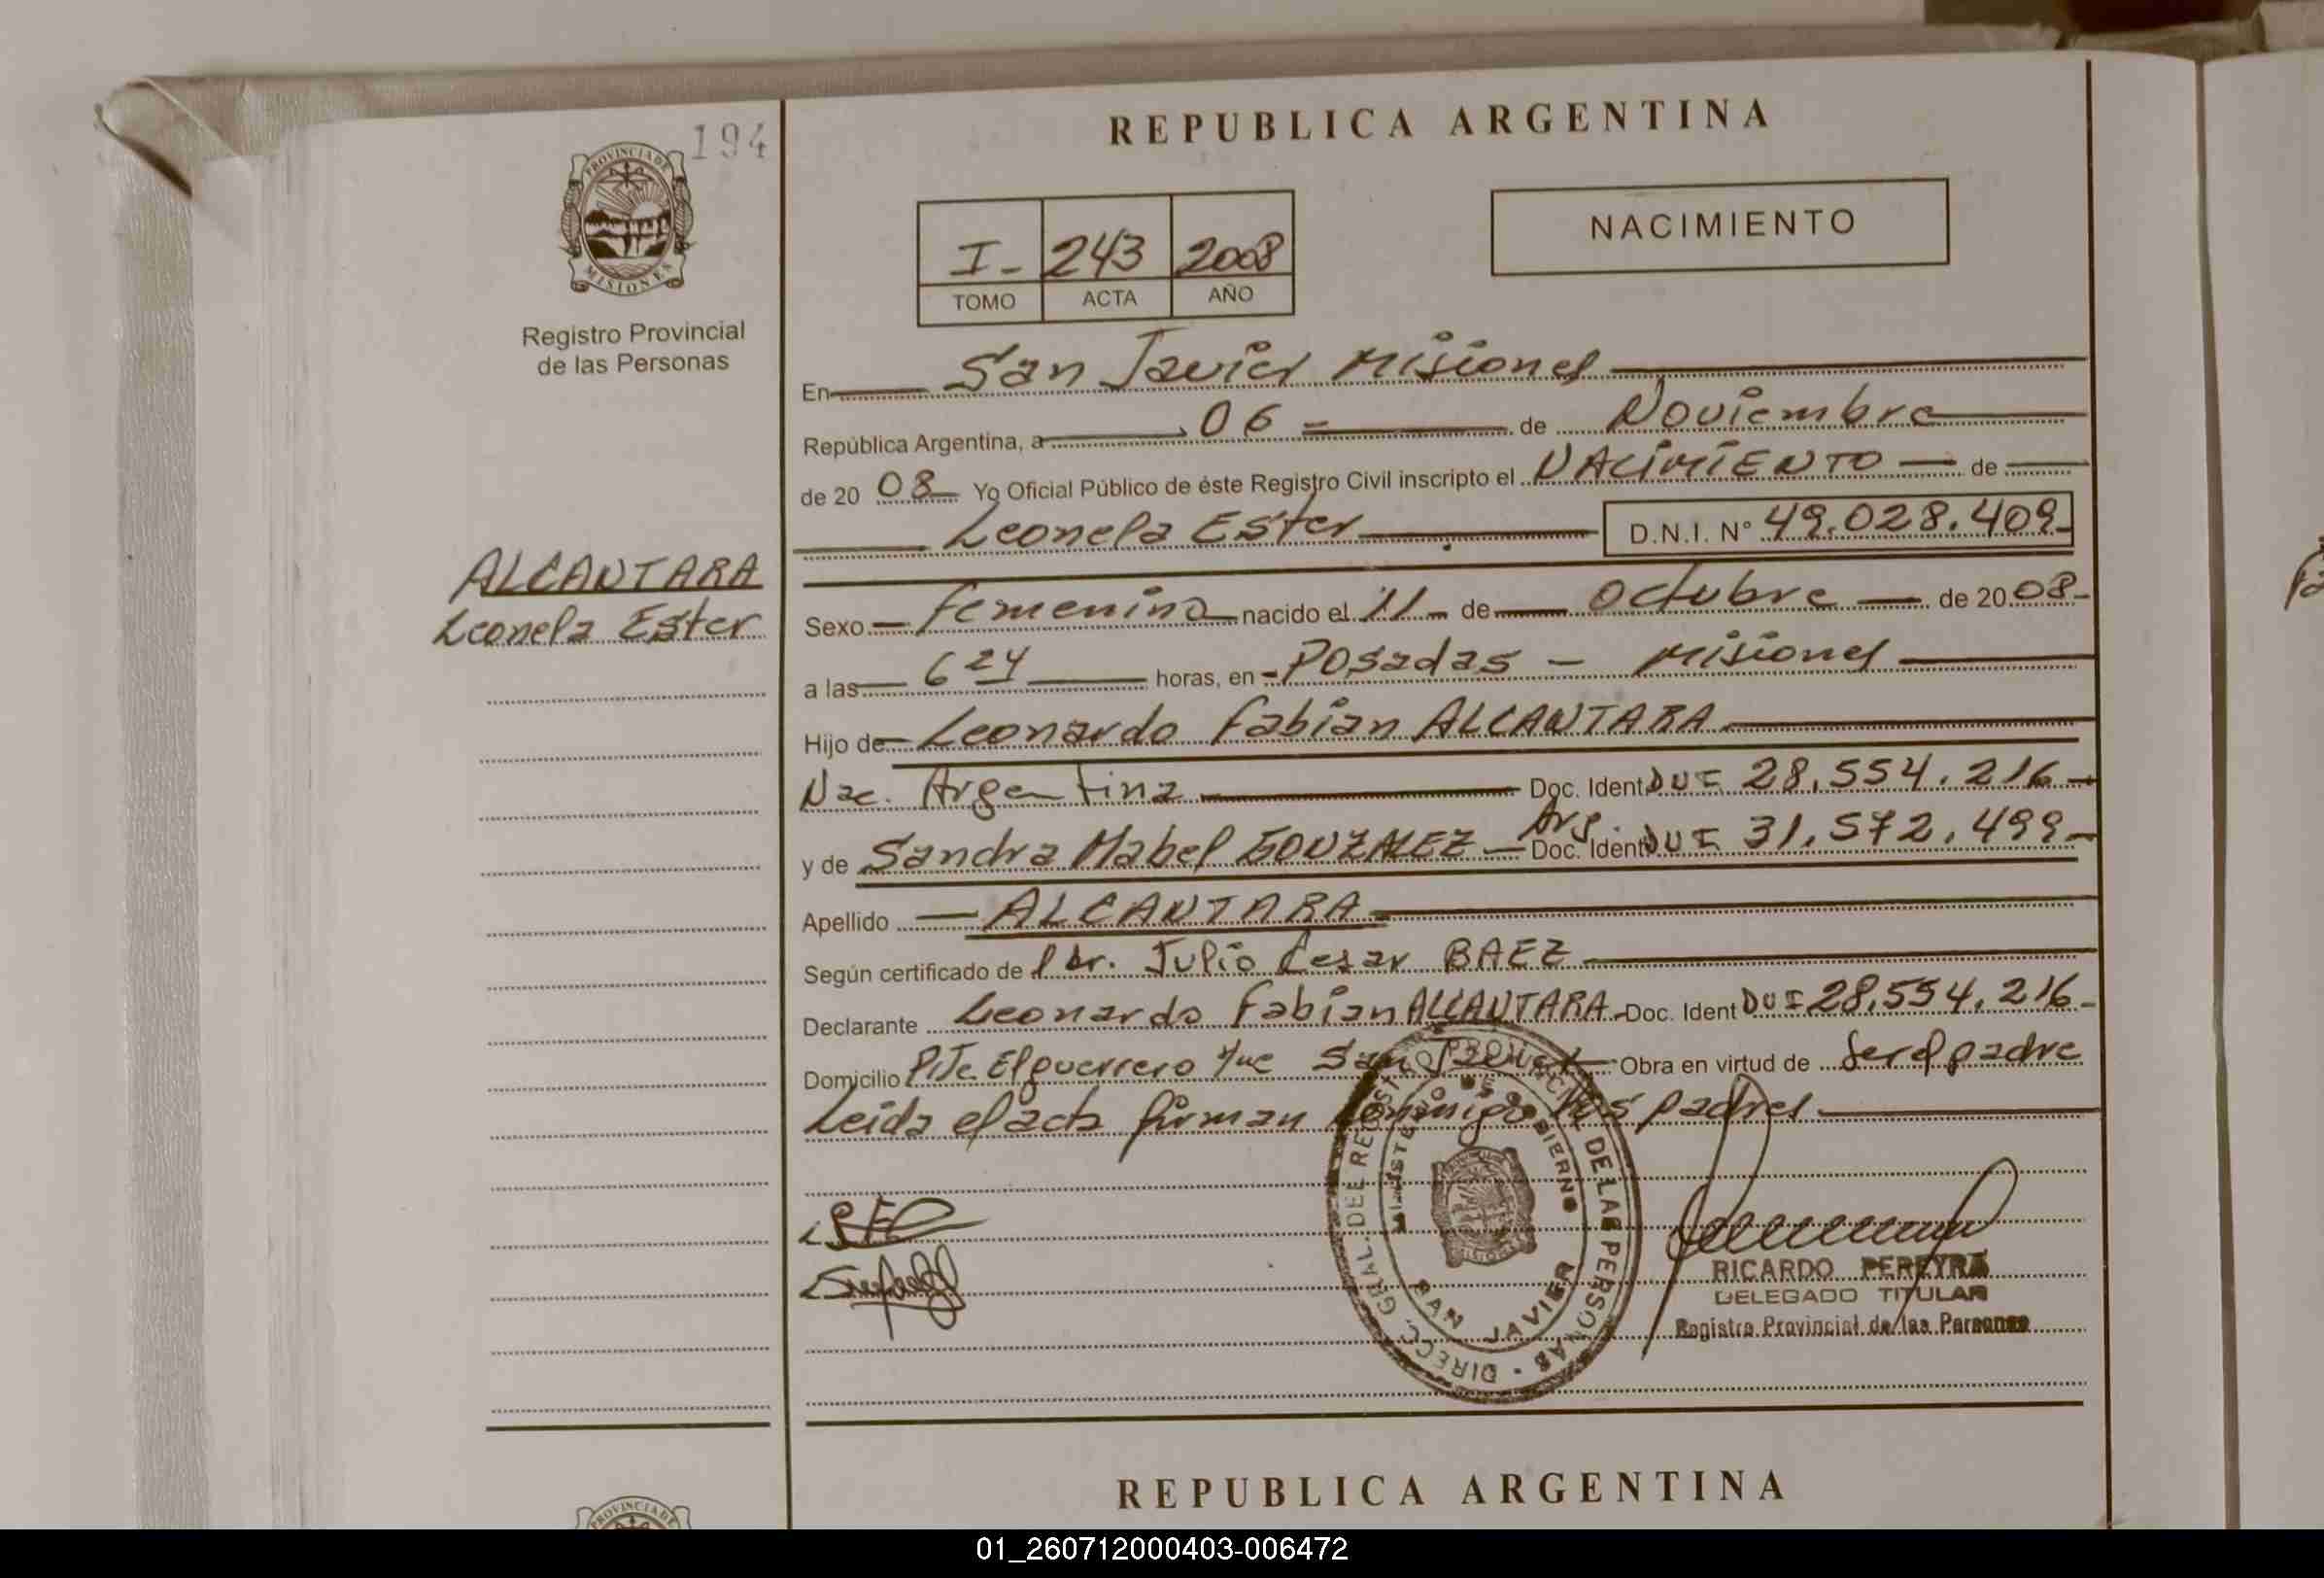 194
PROVINCIA DE
MISIONES
Registro Provincial
de las Personas
ALCANTARA
Leonela Ester
REPUBLICA ARGENTINA
NACIMIENTO
I- 243 2008
TOMO ACTA AÑO
En San Javier Misiones
República Argentina, a 06 de Noviembre
de 20 08 Yo Oficial Público de éste Registro Civil inscripto el NACIMIENTO de
Leonela Ester D.N.I. N° 49.028.409-
Sexo Femenino nacido el 11 de Octubre de 20 08-
a las 6 24 horas, en Posadas - Misiones
Hijo de Leonardo Fabian ALCANTARA
Nac. Argentina Doc. Ident DUI 28.554.216-
y de Sandra Mabel GONZALEZ - Arg. Doc. Ident DUI 31.572.499-
Apellido ALCANTARA
Según certificado de Dr. Julio Cesar BAEZ
Declarante Leonardo Fabian ALCANTARA Doc. Ident DUI 28.554.216-
Domicilio El guerrero San Javier Obra en virtud de Ser el padre
Leida el acta firman conmigo los padres
DIREC. GRAL. DEL REGISTRO PROVINCIAL DE LAS PERSONAS
MINISTERIO DE GOBIERNO
SAN JAVIER
RICARDO PEREYRA
DELEGADO TITULAR
Registro Provincial de las Personas
REPUBLICA ARGENTINA
PROVINCIA DE
01_260712000403-006472